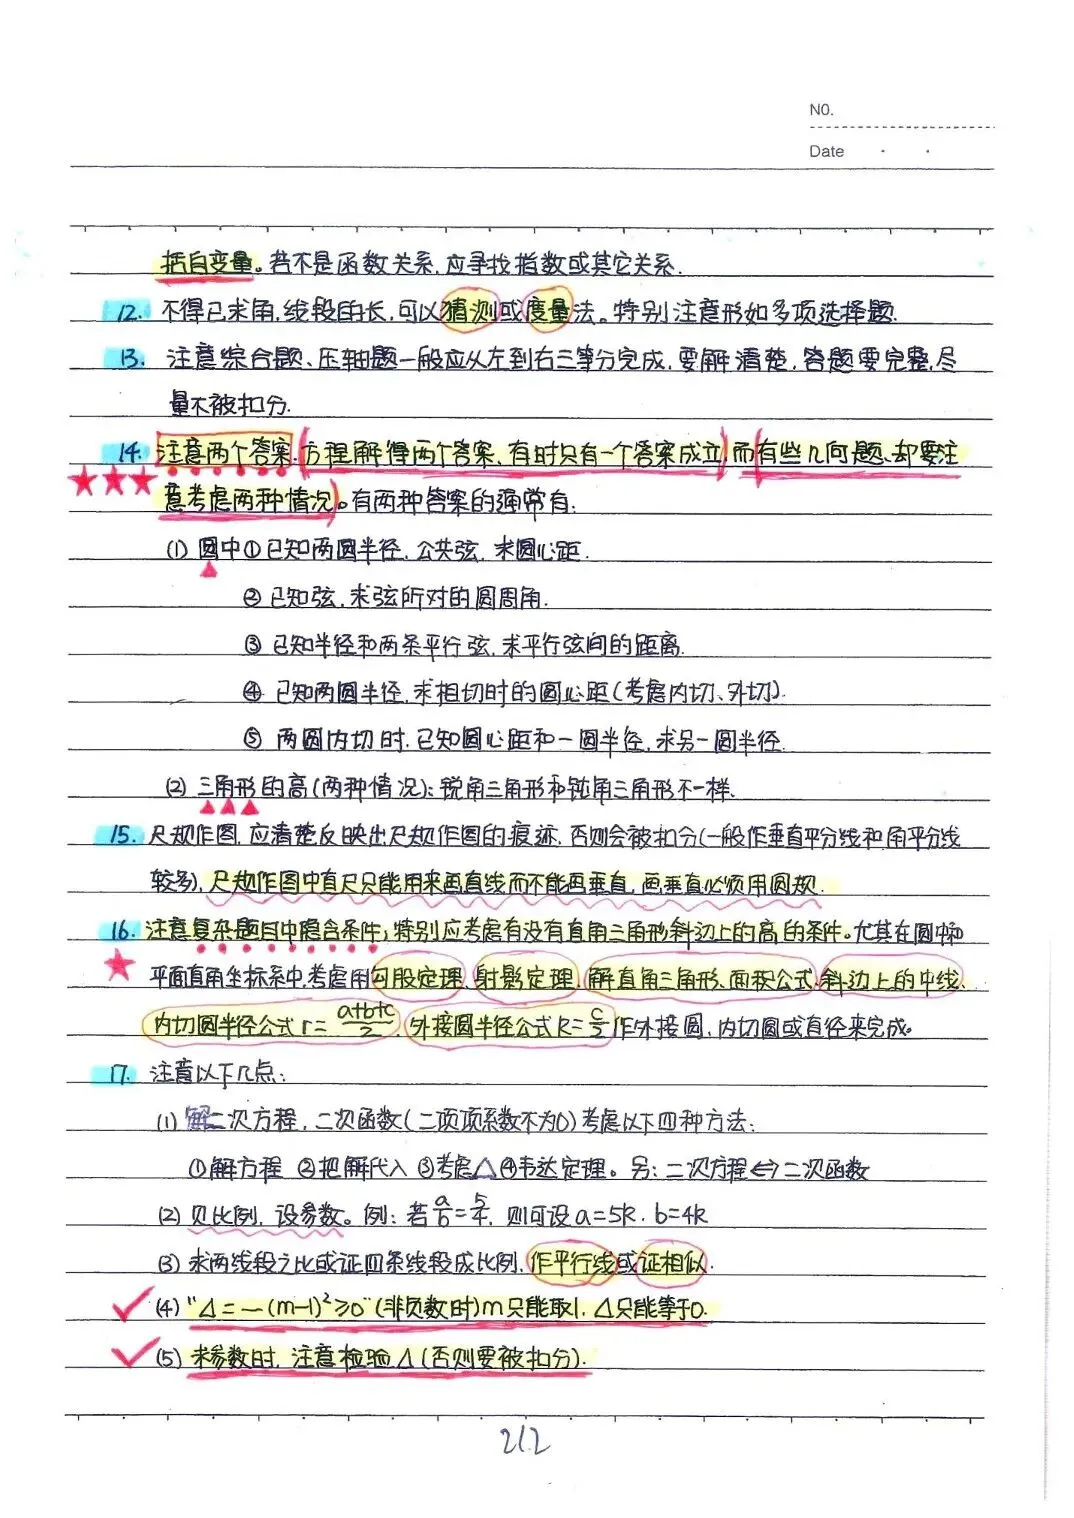 NO.
Date
括自变量。若不是函数关系,应寻找指数或其它关系.
12. 不得已求角,线段的长,可以猜测或度量法。特别注意形如多项选择题.
13. 注意综合题、压轴题一般应从左到右三等分完成,要解清楚,答题要完整,尽
量不被扣分.
14. 注意两个答案(方程解得两个答案,有时只有一个答案成立)而(有些几何题、却要注
意考虑两种情况)。有两种答案的通常有:
(1) 圆中①已知两圆半径,公共弦,求圆心距.
② 已知弦,求弦所对的圆周角.
③ 已知半径和两条平行弦,求平行弦间的距离.
④ 已知两圆半径,求相切时的圆心距(考虑内切、外切).
⑤ 两圆内切时,已知圆心距和一圆半径,求另一圆半径.
(2) 三角形的高(两种情况):锐角三角形和钝角三角形不一样.
15. 尺规作图,应清楚反映出尺规作图的痕迹,否则会被扣分(一般作垂直平分线和角平分线
较多),尺规作图中直尺只能用来画直线而不能画垂直,画垂直必须用圆规.
16. 注意复杂题目中隐含条件,特别应考虑有没有直角三角形斜边上的高的条件。尤其在圆中和
平面直角坐标系中,考虑用勾股定理、射影定理、解直角三角形、面积公式、斜边上的中线、
内切圆半径公式r=a+b+c/2,外接圆半径公式R=c/2作外接圆,内切圆或直径来完成。
17. 注意以下几点:
(1) 解二次方程,二次函数(二项项系数不为0)考虑以下四种方法:
①解方程 ②把解代入 ③考虑△④韦达定理。另:二次方程⇔二次函数
(2) 见比例,设参数。例:若a/b=5/4,则可设a=5k.b=4k
(3) 求两线段之比或证四条线段成比例,作平行线或证相似.
(4) "Δ=-(m-1)²≥0"(非负数时)m只能取1,Δ只能等于0.
(5) 求参数时,注意检验Δ(否则要被扣分).
212